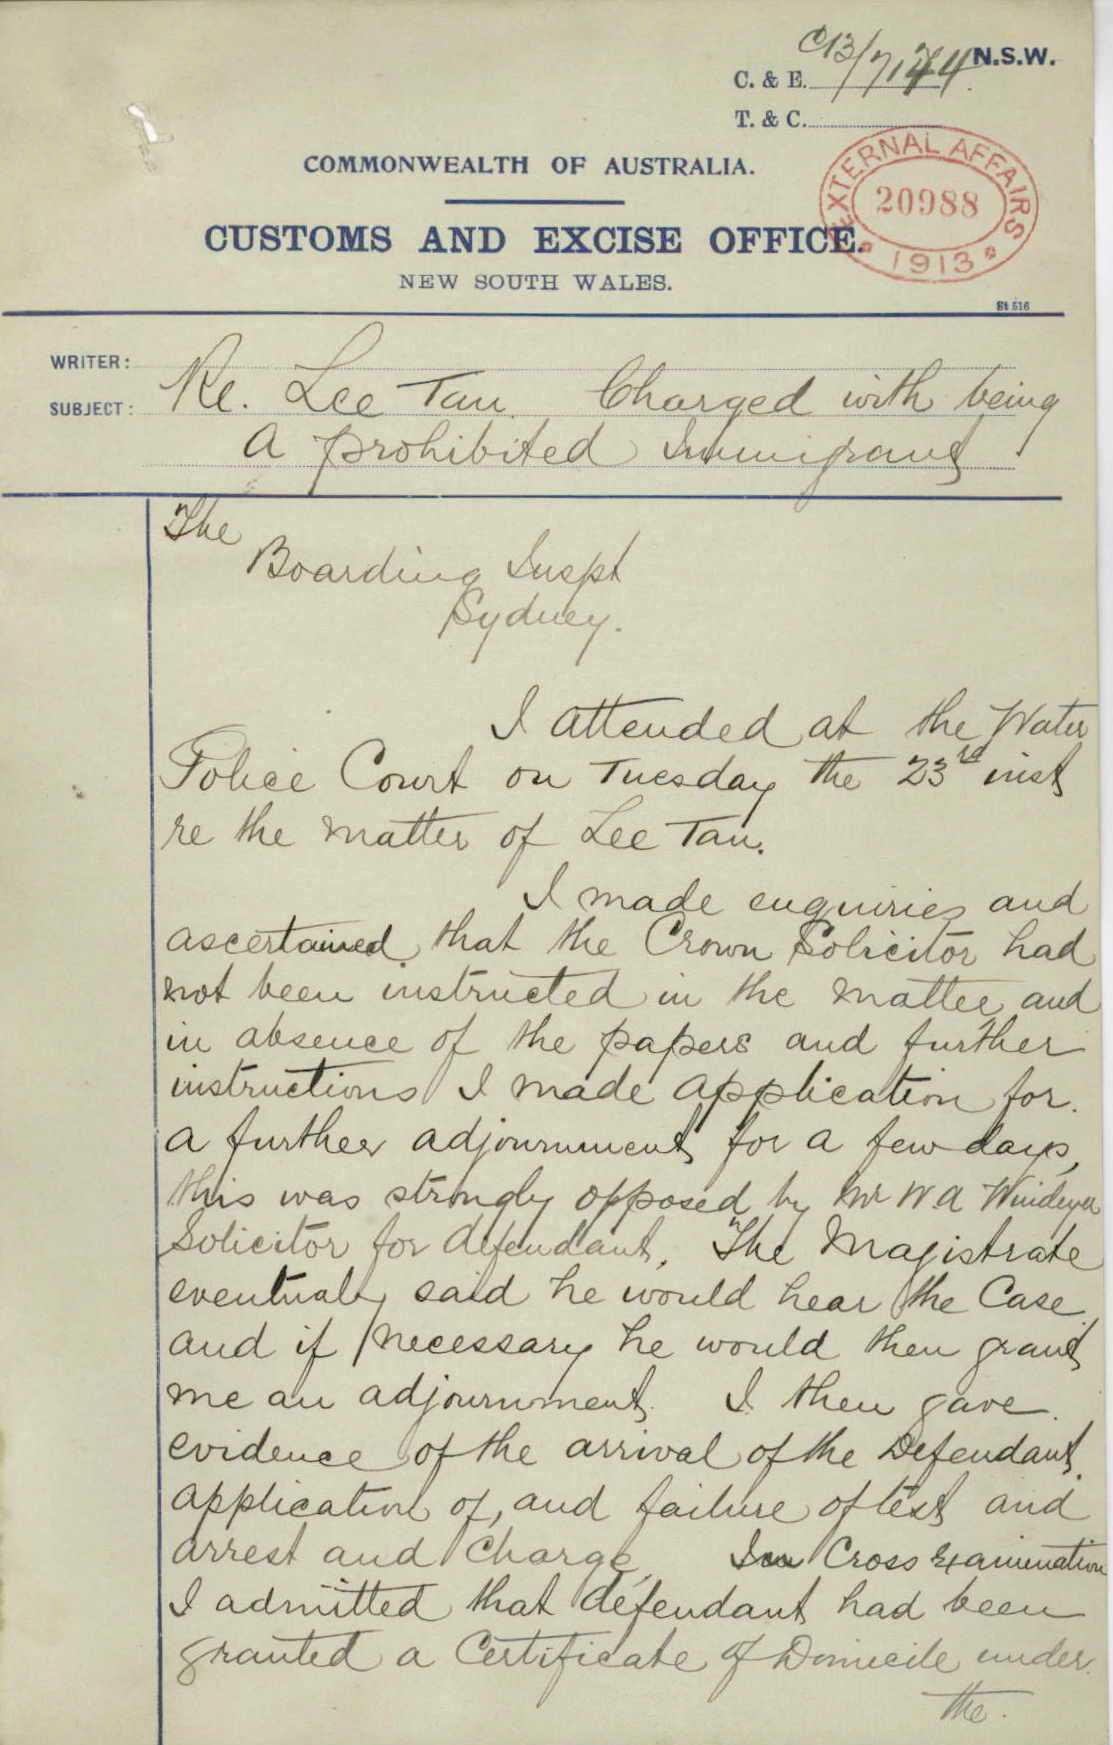 C13/7144 N.S.W.
C. & E.
T. & C.
COMMONWEALTH OF AUSTRALIA.
EXTERNAL AFFAIRS
20988
1913
CUSTOMS AND EXCISE OFFICE.
NEW SOUTH WALES.
St 516
WRITER:
SUBJECT: Re. Lee Tan. Charged with being
a prohibited Immigrant
The
Boarding Inspt
Sydney.
I attended at the Water
Police Court on Tuesday the 23rd inst
re the matter of Lee Tan.
I made enquiries and
ascertained that the Crown Solicitor had
not been instructed in the matter and
in absence of the papers and further
instructions I made application for
a further adjournment for a few days,
this was strongly opposed by Mr W A Windeyer
Solicitor for defendant. The Magistrate
eventualy said he would hear the Case
and if necessary he would then grant
me an adjournment. I then gave
evidence of the arrival of the Defendant.
application of, and failure of test and
arrest and Charge. In Cross Examination
I admitted that defendant had been
granted a Certificate of Domicile under
the.